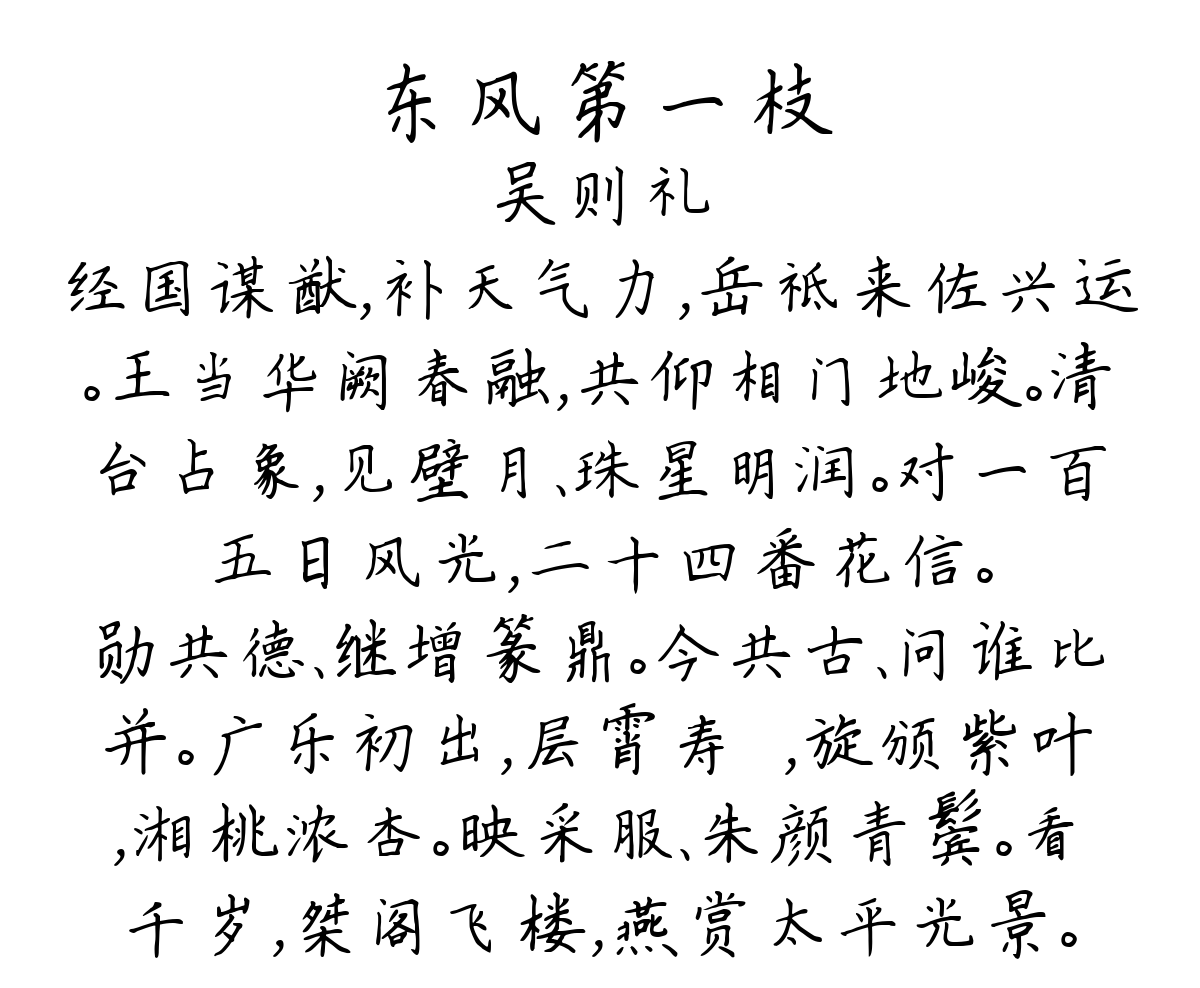 东风第一枝
吴则礼
经国谋猷,补天气力,岳祗来佐兴运
。王当华阙春融,共仰相门地峻。清
台占象,见壁月、珠星明润。对一百
五日风光,二十四番花信。
勋共德、继增篆鼎。今共古、问谁比
并。广乐初出,层霄寿 ,旋颁紫叶
,湘桃浓杏。映采服、朱颜青鬓。看
千岁,桀阁飞楼,燕赏太平光景。